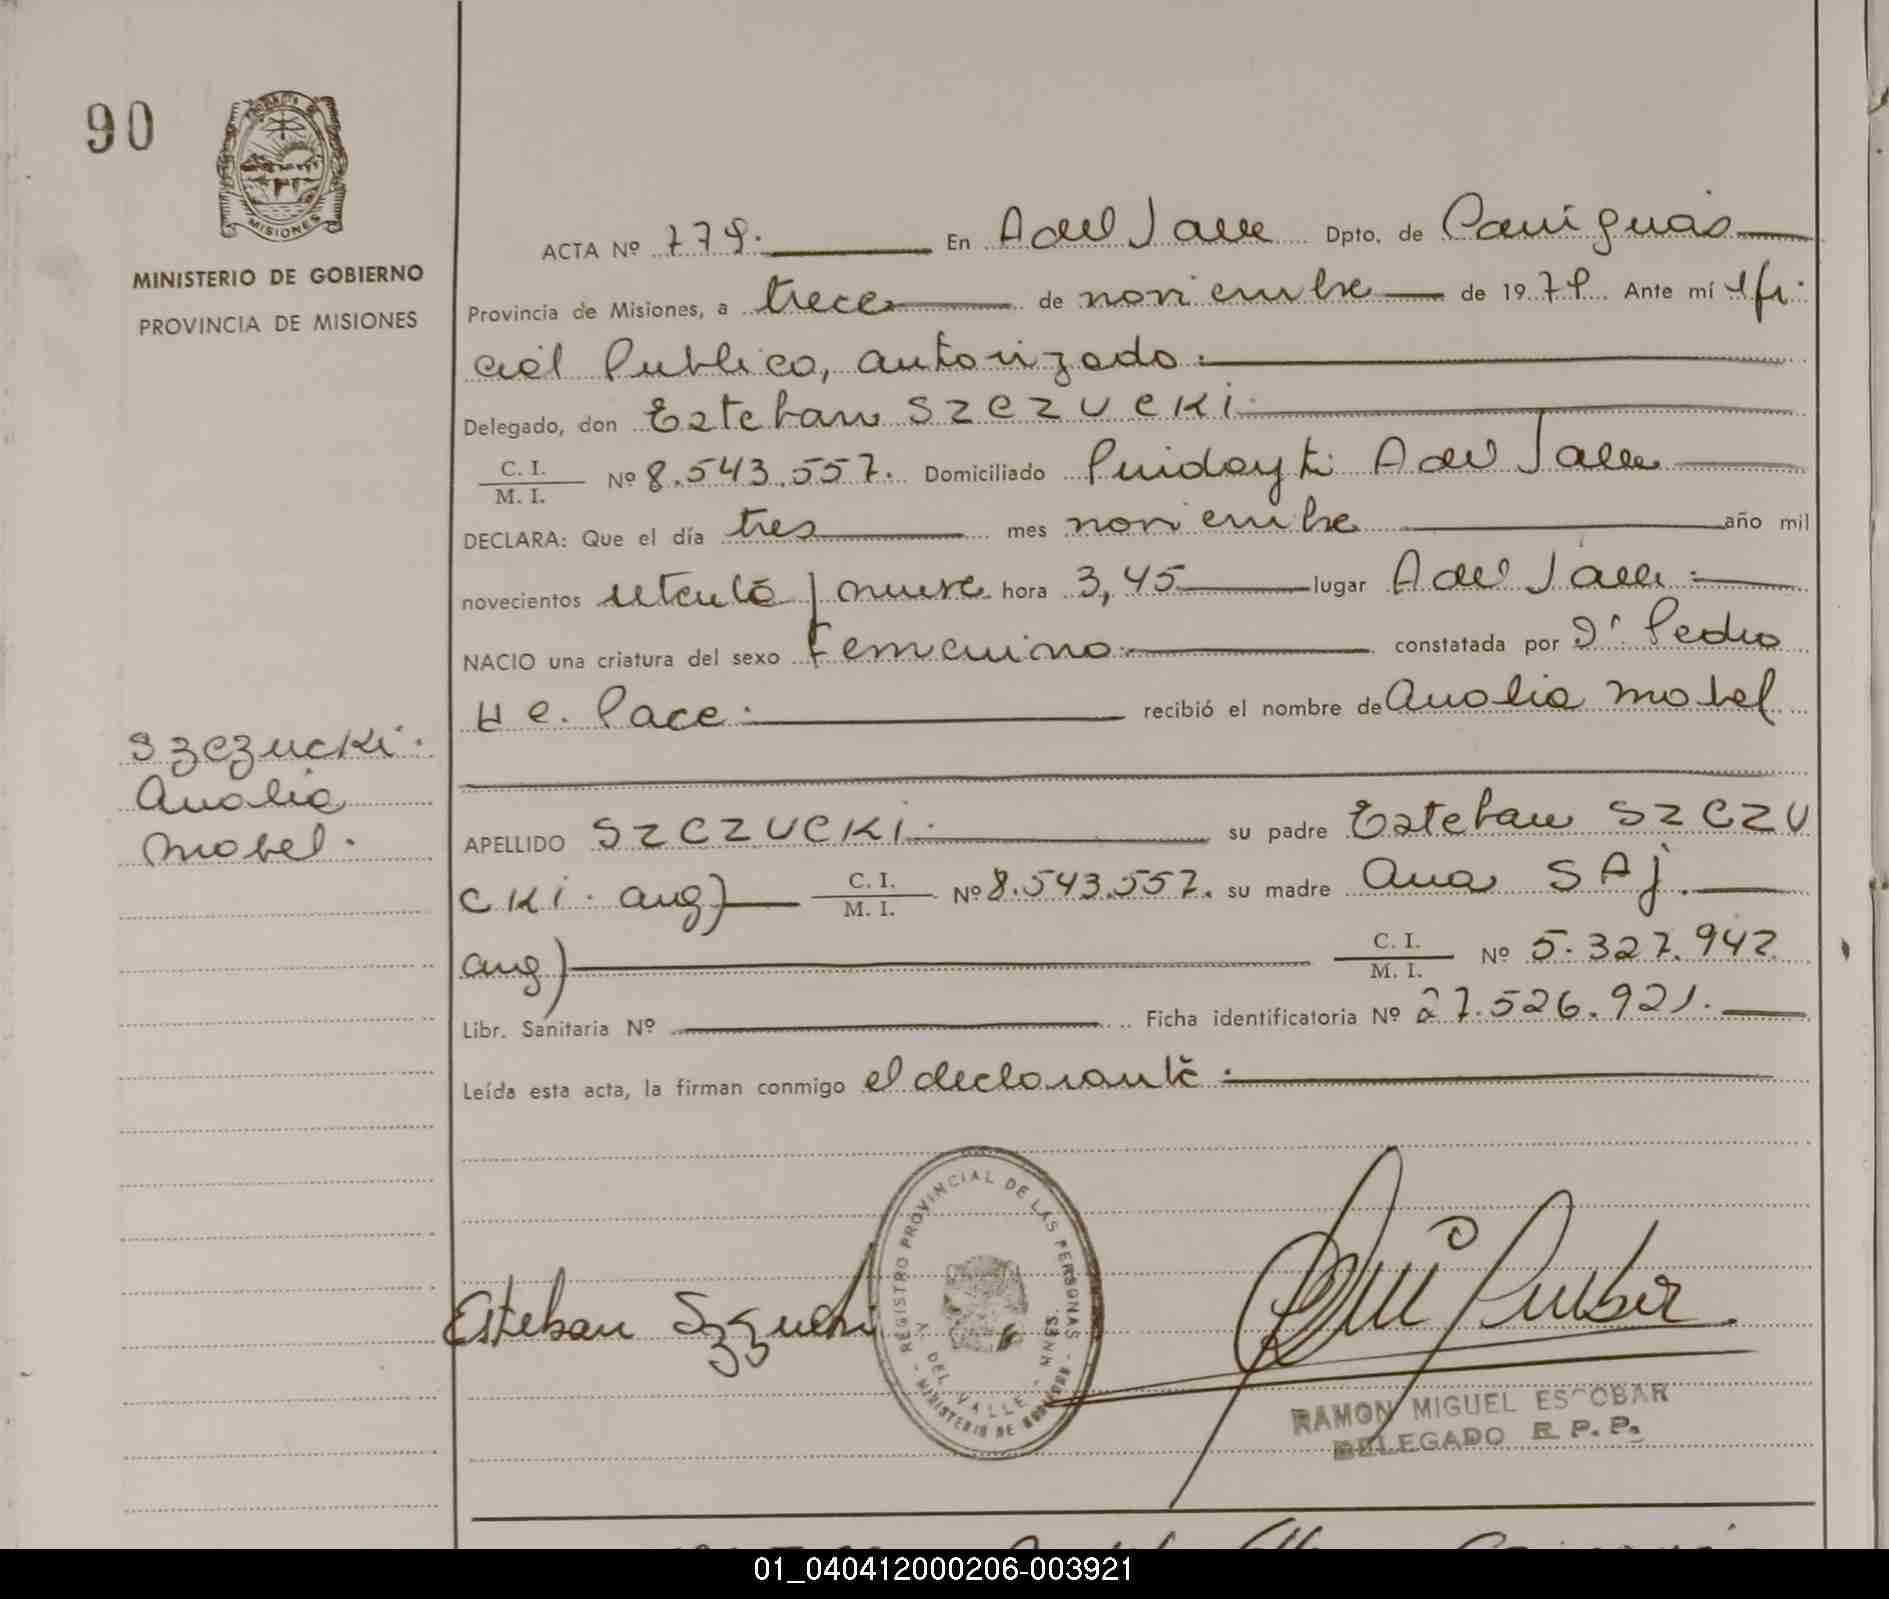 90
MISIONES
MINISTERIO DE GOBIERNO
PROVINCIA DE MISIONES
ACTA Nº 779. En A del Valle Dpto. de Cainguás
Provincia de Misiones, a trece de noviembre de 1979. Ante mí Ofi
cial Publico, autorizado.
Delegado, don Esteban SZCZUCKI.
C. I.
M. I. Nº 8.543.557. Domiciliado Pindayti A del Valle
DECLARA: Que el día tres mes noviembre año mil
novecientos setenta y nueve hora 3,45 lugar A del Valle.
NACIO una criatura del sexo Femenino. constatada por Dr Pedro
H e. Pace. recibió el nombre de Analia Mabel
Szczucki.
Analia
Mabel.
APELLIDO SZCZUCKI. su padre Esteban SZCZU
CKI. arg) C. I. M. I. Nº 8.543.557. su madre Ana SAJ.
arg) C. I. M. I. Nº 5.327.942
Libr. Sanitaria Nº Ficha identificatoria Nº 27.526.921.
Leída esta acta, la firman conmigo el declarante.
REGISTRO PROVINCIAL DE LAS PERSONAS - MINISTERIO DE GOBIERNO
A. DEL VALLE - MNES.
Esteban Szczucki
RAMON MIGUEL ESCOBAR
DELEGADO R. P. P.
01_040412000206-003921